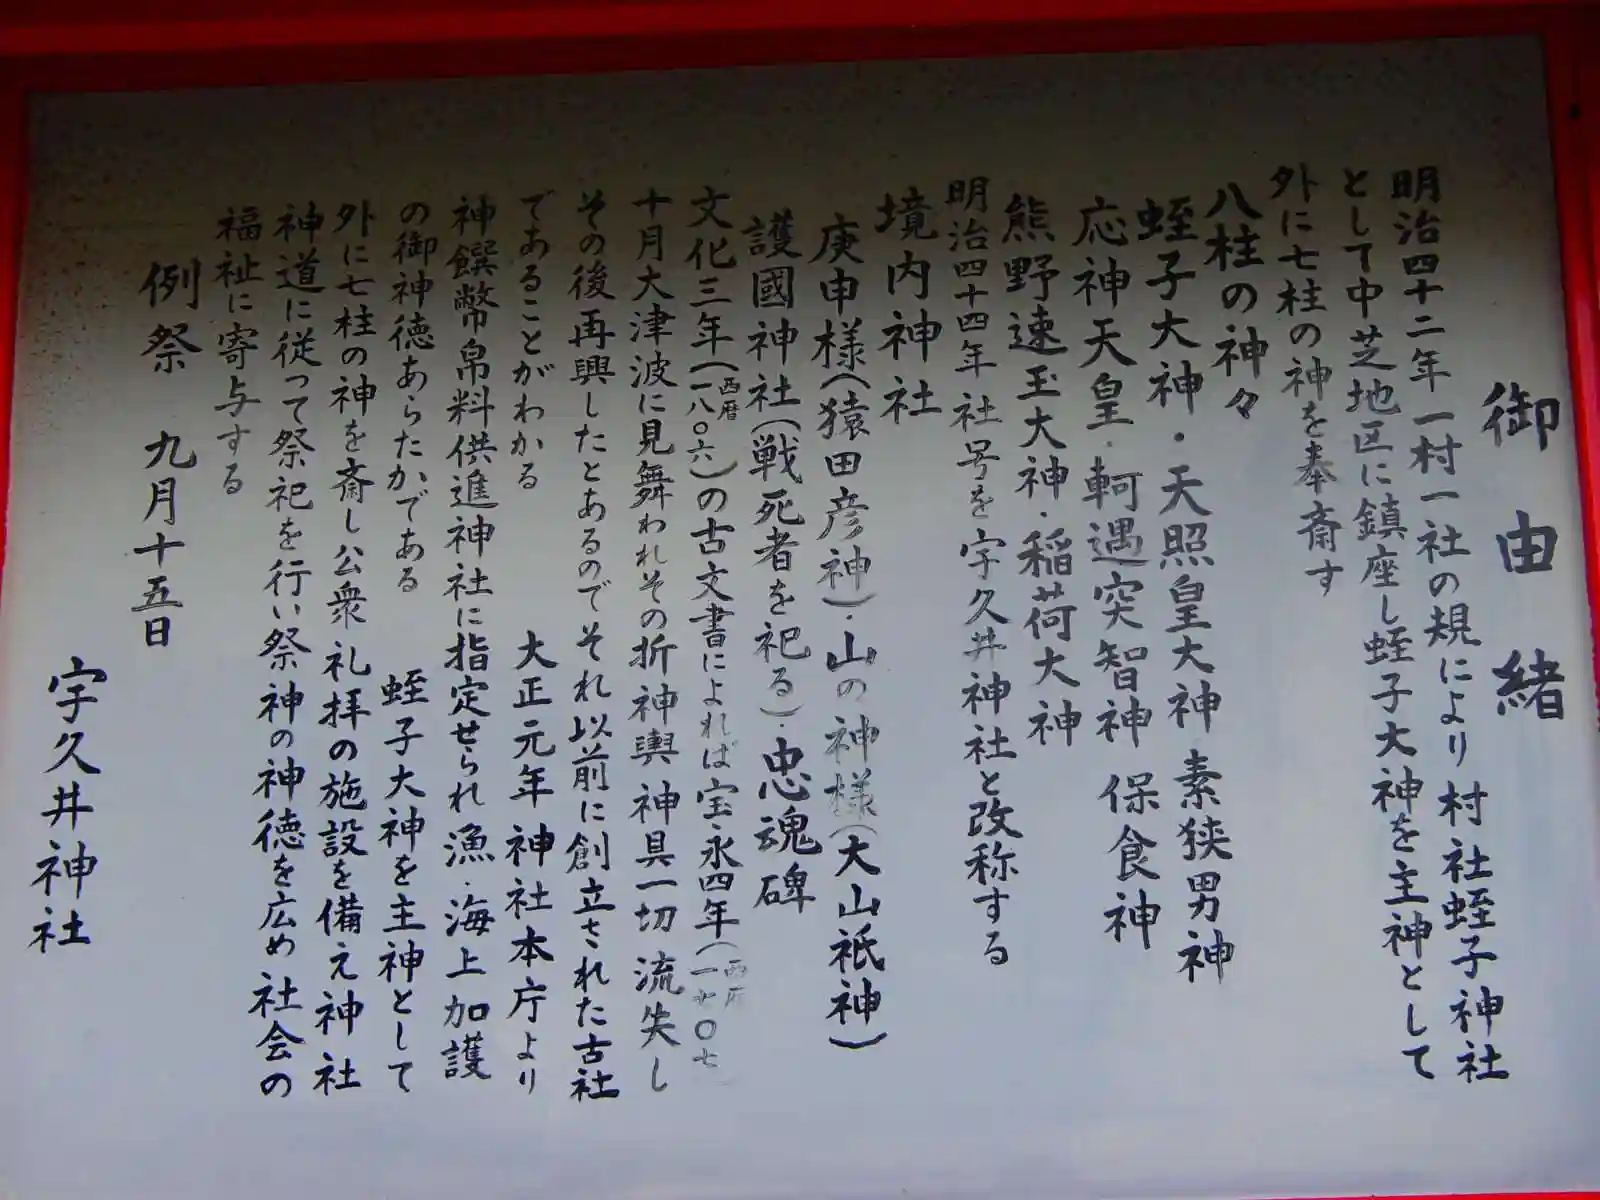 御由緒
明治四十二年 一村一社の規により 村社蛭子神社
として中芝地区に鎮座し蛭子大神を主神として
外に七柱の神を奉斎す
八柱の神々
蛭子大神・天照皇大神 素狭男神
応神天皇・軻遇突智神 保食神
熊野速玉大神・稲荷大神
明治四十四年 社号を宇久井神社と改称する
境内神社
庚申様(猿田彦神)・山の神様(大山祇神)
護國神社(戦死者を祀る)忠魂碑
文化三年(西暦一八〇六)の古文書によれば宝永四年(西暦一七〇七)
十月大津波に見舞われその折神輿神具一切流失し
その後再興したとあるのでそれ以前に創立された古社
であることがわかる 大正元年神社本庁より
神饌幣帛料供進神社に指定せられ漁・海上加護
の御神徳あらたかである 蛭子大神を主神として
外に七柱の神を斎し公衆礼拝の施設を備え神社
神道に従って祭祀を行い祭神の神徳を広め社会の
福祉に寄与する
例祭 九月十五日
宇久井神社